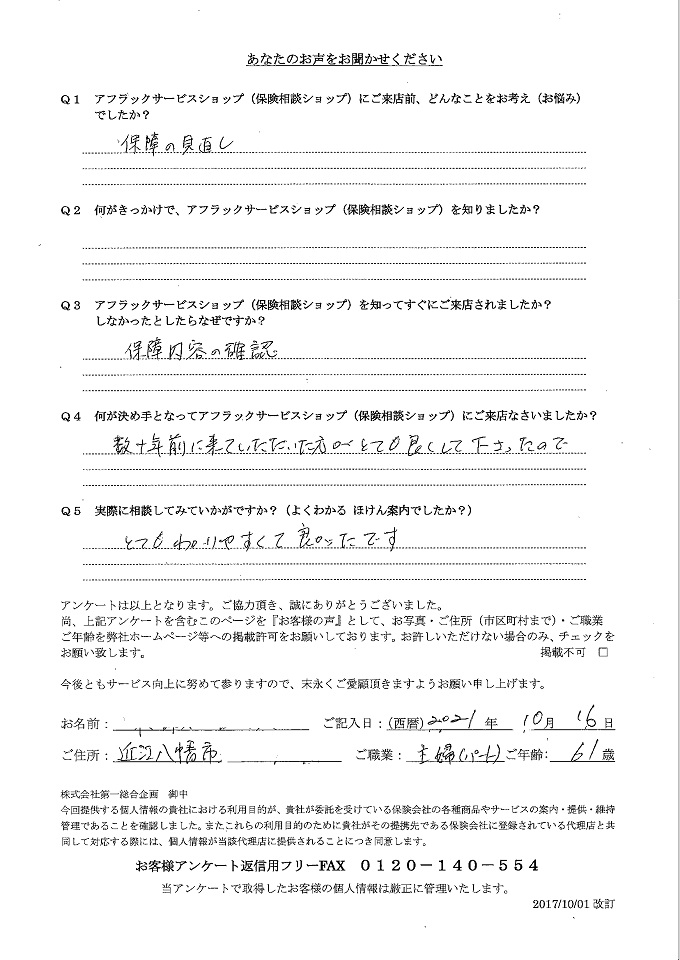 あなたのお声をお聞かせください
Q1 アフラックサービスショップ（保険相談ショップ）にご来店前、どんなことをお考え（お悩み）
でしたか？
保障の見直し
Q2 何がきっかけで、アフラックサービスショップ（保険相談ショップ）を知りましたか？
Q3 アフラックサービスショップ（保険相談ショップ）を知ってすぐにご来店されましたか？
しなかったとしたらなぜですか？
保障内容の確認
Q4 何が決め手となってアフラックサービスショップ（保険相談ショップ）にご来店なさいましたか？
数十年前に来ていただいた方がとても良くして下さったので
Q5 実際に相談してみていかがですか？（よくわかる ほけん案内でしたか？）
とてもわかりやすくて良かったです
アンケートは以上となります。ご協力頂き、誠にありがとうございました。
尚、上記アンケートを含むこのページを『お客様の声』として、お写真・ご住所（市区町村まで）・ご職業
ご年齢を弊社ホームページ等への掲載許可をお願いしております。お許しいただけない場合のみ、チェックを
お願い致します。 掲載不可 □
今後ともサービス向上に努めて参りますので、末永くご愛顧頂きますようお願い申し上げます。
お名前： ご記入日：(西暦) 2021 年 10 月 16 日
ご住所： 近江八幡市 ご職業： 主婦(パート) ご年齢： 61 歳
株式会社第一総合企画 御中
今回提供する個人情報の貴社における利用目的が、貴社が委託を受けている保険会社の各種商品やサービスの案内・提供・維持
管理であることを確認しました。またこれらの利用目的のために貴社がその提携先である保険会社に登録されている代理店と共
同して対応する際には、個人情報が当該代理店に提供されることにつき同意します。
お客様アンケート返信用フリーFAX ０１２０－１４０－５５４
当アンケートで取得したお客様の個人情報は厳正に管理いたします。
2017/10/01 改訂